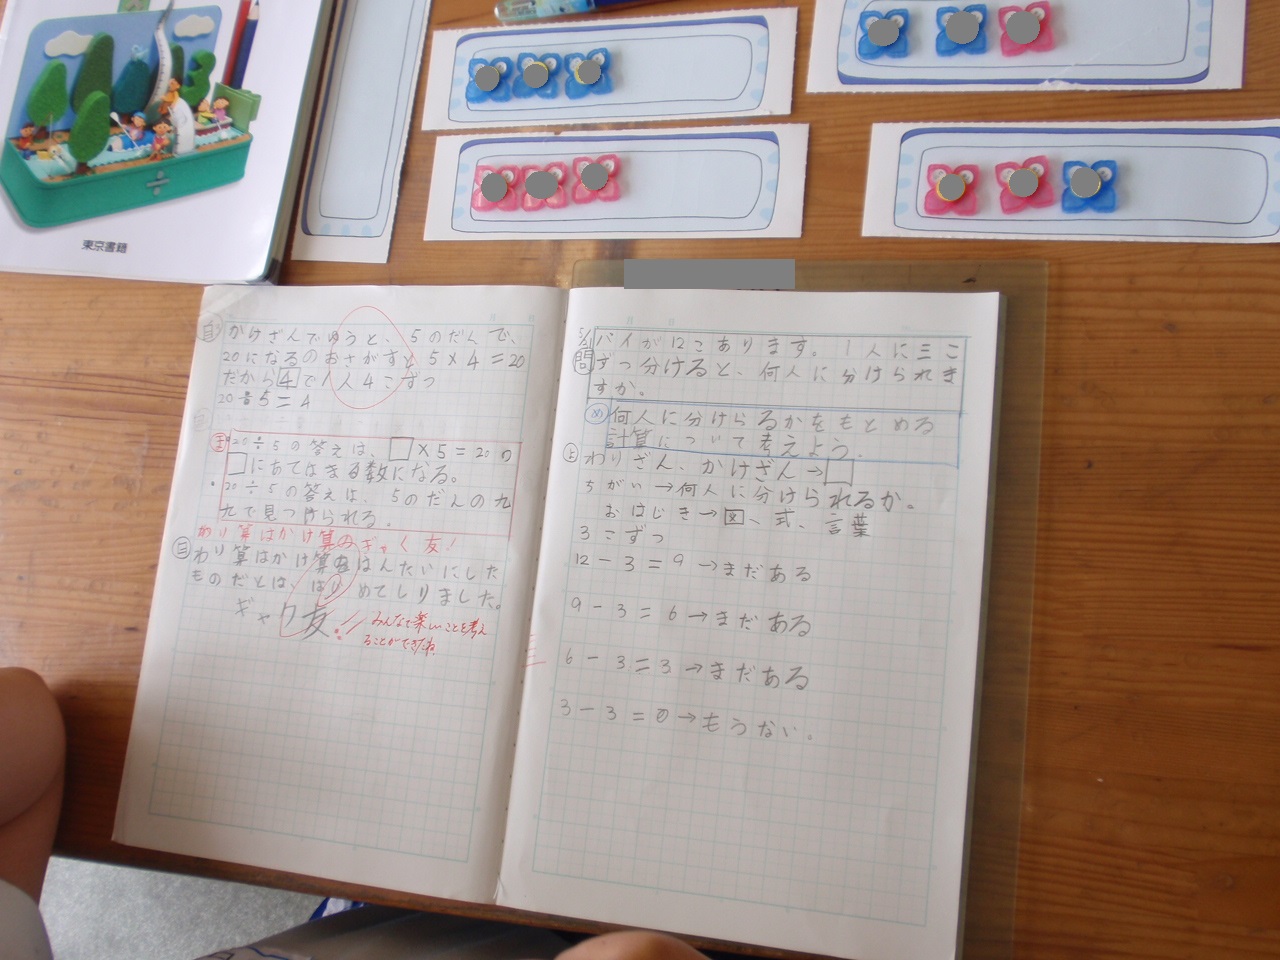 東京書籍
自 かけざんでゆうと、5のだんで、
20になるのおさがすと5×4=20
だから4で1人4こずつ
20÷5=4
ま 20÷5の答えは、□×5=20の
□にあてはまる数になる。
・20÷5の答えは、5のだんの九
九で見つけられる。
わり算はかけ算のぎゃく友!
自 わり算はかけ算をはんたいにした
ものだとは、はじめてしりました。
ギャク友!!
みんなで楽しいことを考え
ることができたね
問 パイが12こあります。1人に三こ
ずつ分けると、何人に分けられま
すか。
め 何人に分けらるかをもとめる
計算について考えよう。
よ わりざん、かけざん→□
ちがい→何人に分けられるか。
おはじき→図、式、言葉
3こずつ
12-3=9→まだある
9-3=6→まだある
6-3=3→まだある
3-3=0→もうない。